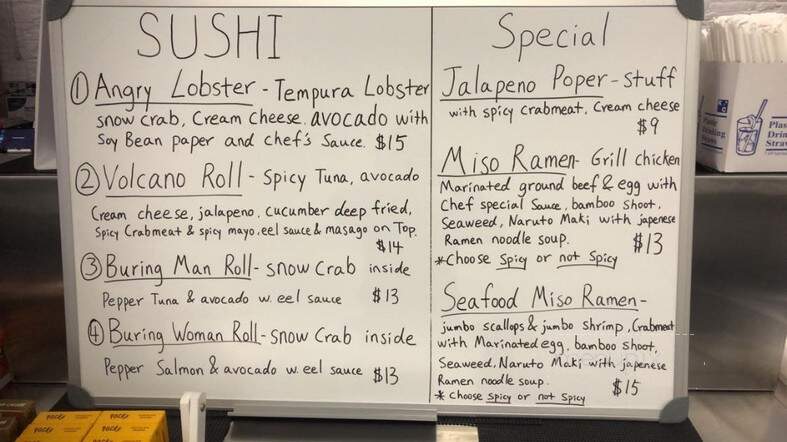 SUSHI
① Angry Lobster - Tempura Lobster
snow crab, Cream Cheese. avocado with
Soy Bean paper and chef's Sauce. $15
② Volcano Roll - Spicy Tuna, avocado
Cream cheese, jalapeno, cucumber deep fried,
Spicy Crabmeat & spicy mayo. eel sauce & masago on Top.
$14
③ Buring Man Roll - snow Crab inside
Pepper Tuna & avocado w. eel sauce $13
④ Buring Woman Roll - snow Crab inside
Pepper Salmon & avocado w. eel sauce $13
Special
Jalapeno Poper - stuff
with spicy crabmeat, Cream cheese
$9
Miso Ramen - Grill chicken
Marinated ground beef & egg with
Chef special Sauce, bamboo shoot,
Seaweed, Naruto Maki with japenese
Ramen noodle soup. $13
*Choose Spicy or not Spicy
Seafood Miso Ramen -
jumbo scallops & jumbo shrimp, Crabmeat
with Marinated egg, bamboo shoot,
Seaweed, Naruto Maki with japenese
Ramen noodle soup. $15
* choose spicy or not Spicy
Plastic
Drinking
Straws
Plas
Drin
Straw
POCKY
POCKY